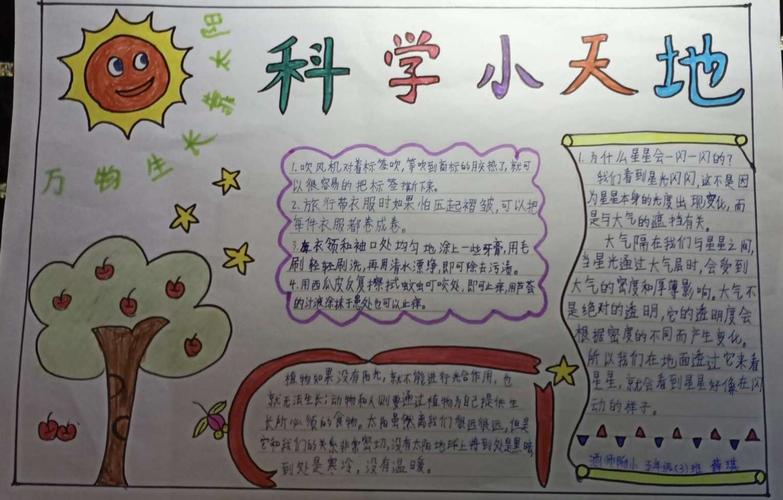 科学小天地
万物生长靠太阳
1.吹风机对着标签吹,等吹到商标的胶热了,就可
以很容易的把标签撕下来。
2.旅行带衣服时如果怕压起褶皱,可以把
每件衣服都卷成卷。
3.在衣领和袖口处均匀地涂上一些牙膏,用毛
刷轻轻刷洗,再用清水漂净,即可除去污渍。
4.用西瓜皮反复擦拭蚊虫叮咬处,即可止痒,用芦荟
的汁液涂抹于患处也可以止痒。
1.为什么星星会一闪一闪的?
我们看到星光闪闪,这不是因
为星星本身的光度出现变化,而
是与大气的遮挡有关。
大气隔在我们与星星之间,
当星光通过大气层时,会受到
大气的密度和厚薄影响。大气不
是绝对的透明,它的透明度会
根据密度的不同而产生变化。
所以我们在地面透过它来看
星星,就会看到星星好像在闪
动的样子。
植物如果没有阳光,就不能进行光合作用,也
就无法生长;动物和人则要通过植物为自己提供生
长所必须的食物。太阳虽然离我们很远很远,但是
它和我们的关系非常密切,没有太阳地球上将到处是黑暗
到处是寒冷,没有温暖。
酒师附小 三年级(3)班